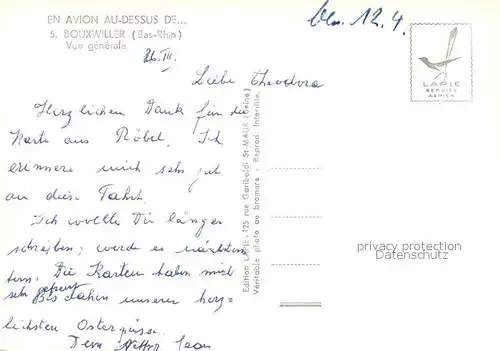 EN AVION AU-DESSUS DE...
5. BOUXWILLER (Bas-Rhin)
Vue générale
26. III.
12.4.
LAPIE
SERVICE
AERIEN
Liebe Theodora
Herzlichen Dank für die
Karte aus Röbel. Ich
erinnere mich sehr gut
an diese Fahrt.
Ich wollte Dir länger
schreiben; werde es nächstens
tun. Die Karten haben mich
sehr gefreut
Bis dahin unsere herz-
lichsten Ostergrüsse.
Dein Jean
Edition LAPIE - 125 rue Garibaldi St-MAUR (Seine)
Véritable photo au bromure - Reprod. Interdite.
privacy protection
Datenschutz